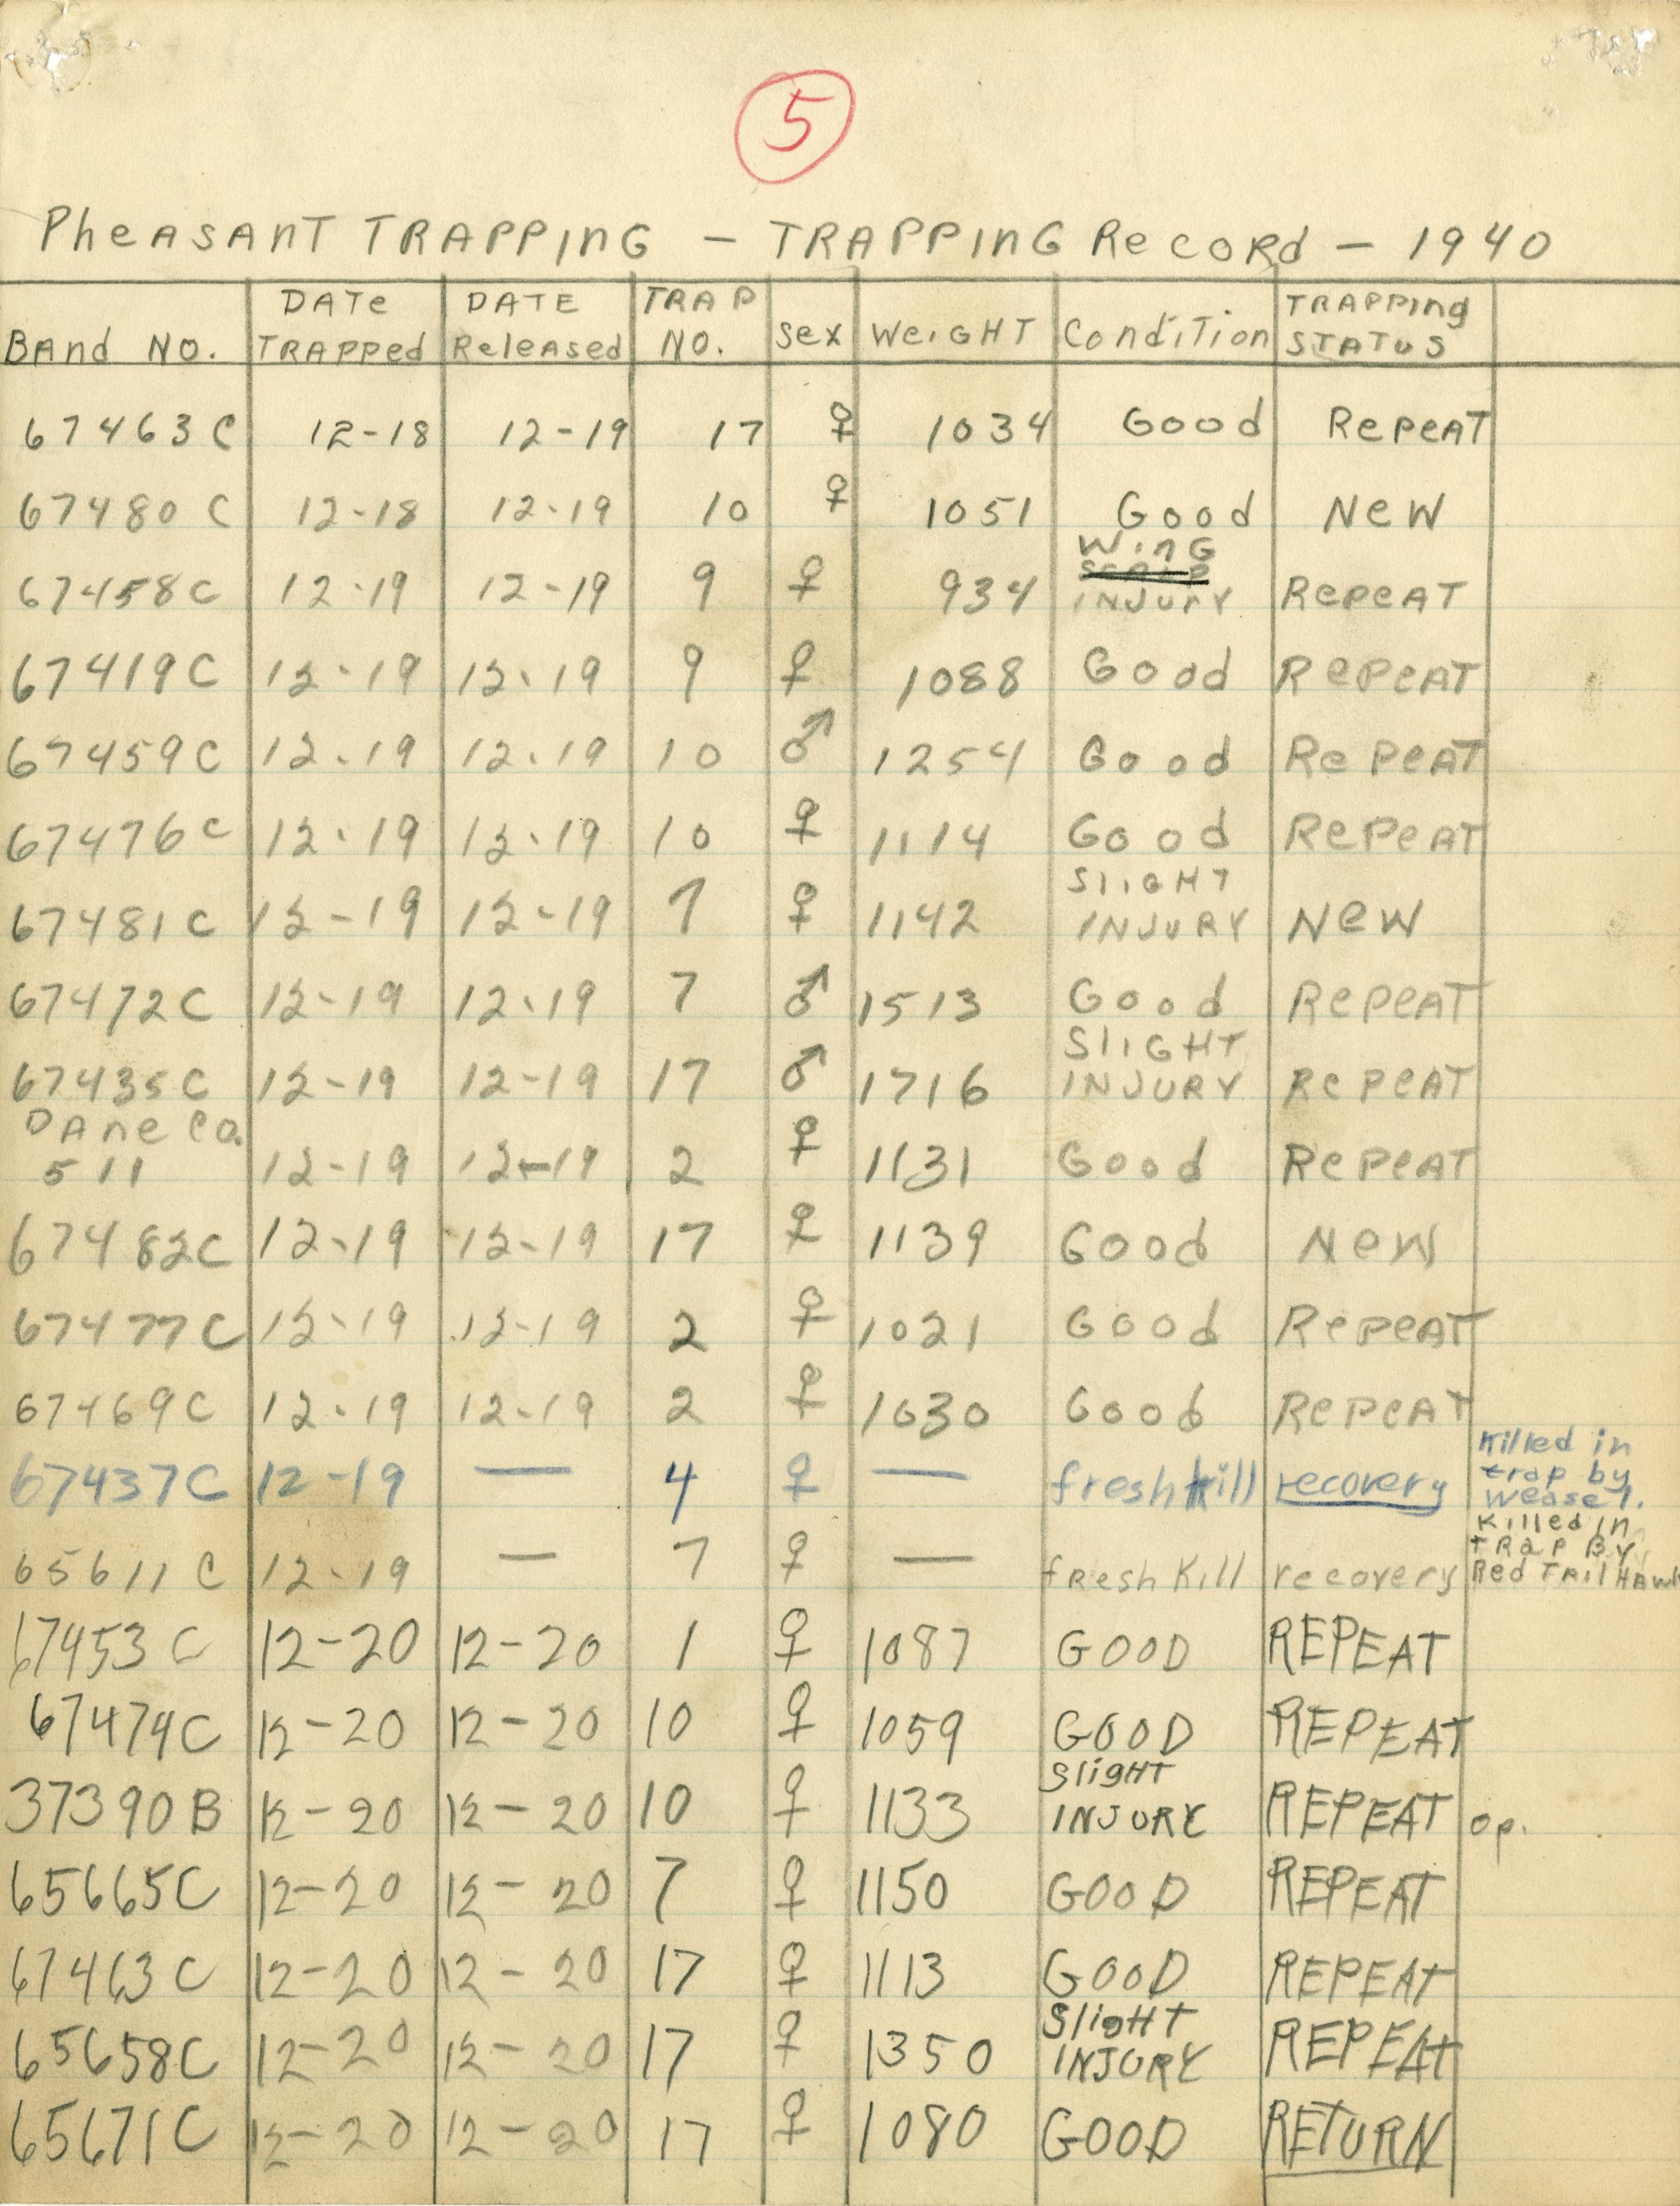 5
Pheasant Trapping – Trapping Record – 1940
Band No. Date Trapped Date Released Trap No. Sex Weight Condition Trapping Status
67463C 12-18 12-19 17 ♀ 1034 Good Repeat
67480C 12-18 12-19 10 ♀ 1051 Good New
67458C 12-19 12-19 9 ♀ 934 Wing Injury Repeat
67419C 12-19 12-19 9 ♀ 1088 Good Repeat
67459C 12-19 12-19 10 ♂ 1254 Good Repeat
67476C 12-19 12-19 10 ♀ 1114 Good Repeat
67481C 12-19 12-19 7 ♀ 1142 Slight Injury New
67472C 12-19 12-19 7 ♂ 1513 Good Repeat
67435C 12-19 12-19 17 ♂ 1716 Slight Injury Repeat
Dane Co. 511 12-19 12-19 2 ♀ 1131 Good Repeat
67482C 12-19 12-19 17 ♀ 1139 Good New
67477C 12-19 12-19 2 ♀ 1021 Good Repeat
67469C 12-19 12-19 2 ♀ 1030 Good Repeat
67437C 12-19 — 4 ♀ — fresh kill recovery Killed in trap by weasel.
65611C 12-19 — 7 ♀ — fresh Kill recovery Killed in trap By Red Tail Hawk
67453C 12-20 12-20 1 ♀ 1087 GOOD REPEAT
67474C 12-20 12-20 10 ♀ 1059 GOOD REPEAT
37390B 12-20 12-20 10 ♀ 1133 Slight INJURY REPEAT op.
65665C 12-20 12-20 7 ♀ 1150 GOOD REPEAT
67463C 12-20 12-20 17 ♀ 1113 GOOD REPEAT
65658C 12-20 12-20 17 ♀ 1350 Slight INJURY REPEAT
65671C 12-20 12-20 17 ♀ 1080 GOOD RETURN